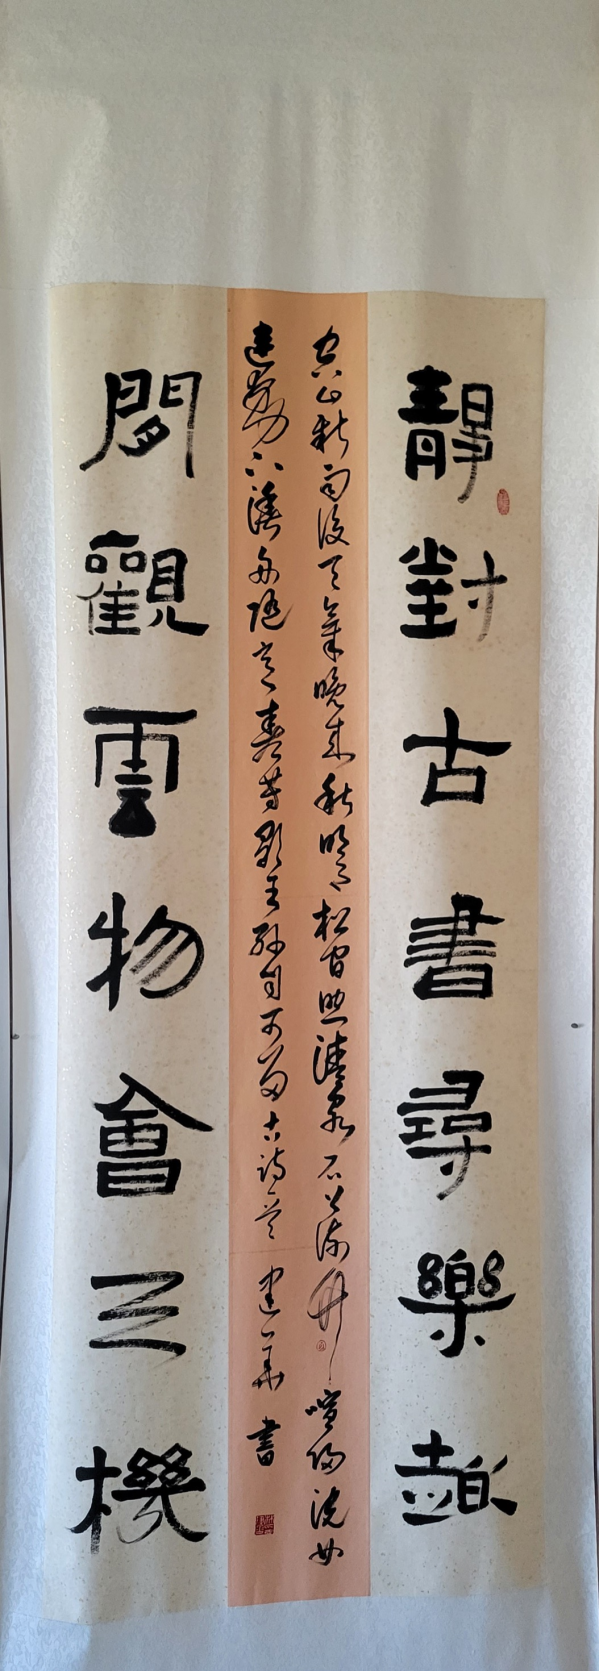 靜對古書尋樂趣
空山新雨後天氣晚來秋明月松間照清泉石上流竹喧歸浣女
蓮動下漁舟隨意春芳歇王孫自可留古詩一首建華書
閒觀雲物會天機